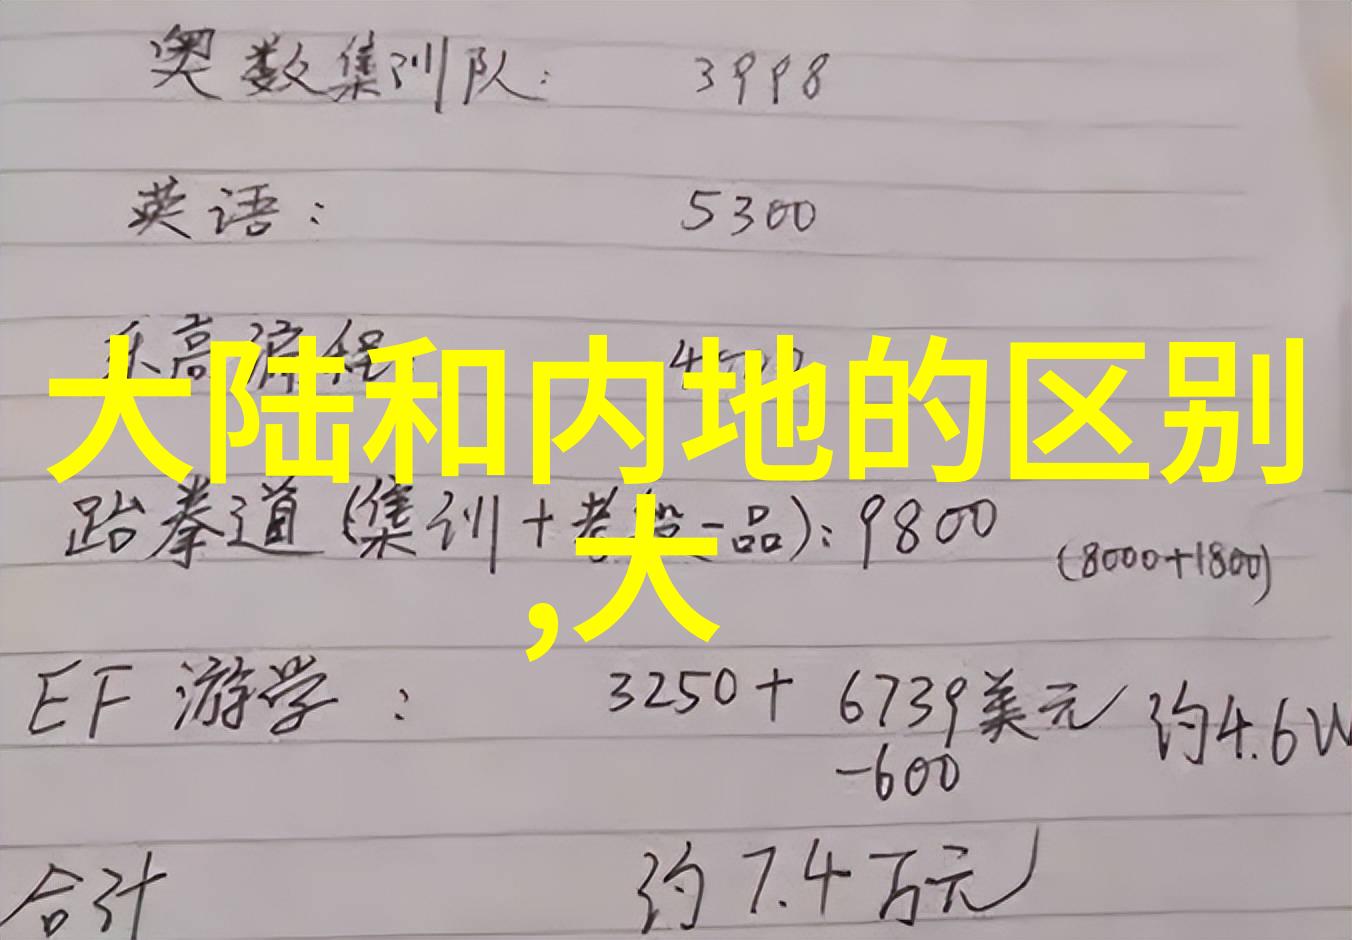 奥数集训队: 3998
英语: 5300
乐高编程
大陆和内地的区别
跆拳道(集训+考级一品):9800 (8000+1800)
,大
EF 游学: 3250+ 6739美元 约4.6W
-600
合计 约7.4万元